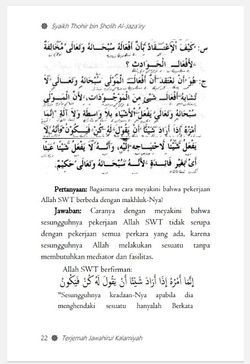 Syaikh Thohir bin Sholih Al-Jaza'iry
س: كَيْفَ الْاِعْتِقَادُ بِأَنَّ أَفْعَالَهُ سُبْحَانَهُ وَتَعَالَى مُخَالِفَةٌ
لِأَفْعَالِ الْحَوَادِثِ؟
ج: هُوَ أَنْ نَعْتَقِدَ أَنَّ أَفْعَالَ الْمَوْلَى سُبْحَانَهُ وَتَعَالَى لَا
تُشْبِهُ أَفْعَالَ شَيْءٍ مِنَ الْمَوْجُودَاتِ،
أَمْرُهُ إِذَا أَرَادَ شَيْئًا أَنْ يَقُولَ لَهُ كُنْ فَيَكُونُ
Pertanyaan: Bagaimana cara meyakini bahwa pekerjaan
Allah SWT berbeda dengan makhluk-Nya?
Jawaban: Caranya dengan meyakini bahwa
sesungguhnya pekerjaan Allah SWT tidak serupa
dengan pekerjaan semua perkara yang ada, karena
sesungguhnya Allah melakukan sesuatu tanpa
membutuhkan mediator dan fasilitas.
Allah SWT berfirman:
إِنَّمَا أَمْرُهُ إِذَا أَرَادَ شَيْئًا أَنْ يَقُولَ لَهُ كُنْ فَيَكُونُ
"Sesungguhnya keadaan-Nya apabila dia
menghendaki sesuatu hanyalah Berkata
22 Terjemah Jawahirul Kalamiyah